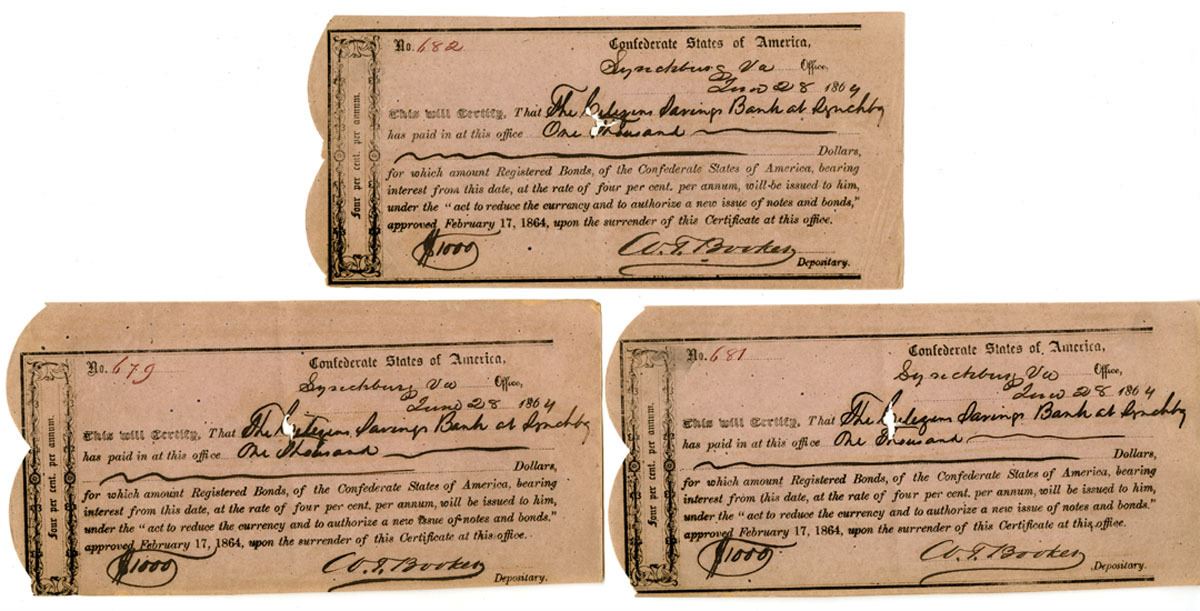 No. 682 Confederate States of America,
Lynchburg Va Office,
June 28 1864
Four per cent. per annum.
This will Certify, That The Citizens Savings Bank at Lynchbg
has paid in at this office One Thousand
Dollars,
for which amount Registered Bonds, of the Confederate States of America, bearing
interest from this date, at the rate of four per cent. per annum, will be issued to him,
under the "act to reduce the currency and to authorize a new issue of notes and bonds,"
approved February 17, 1864, upon the surrender of this Certificate at this office.
$1000 W. T. Booker
Depositary.
No. 679 Confederate States of America,
Lynchburg Va Office,
June 28 1864
Four per cent. per annum.
This will Certify, That The Citizens Savings Bank at Lynchbg
has paid in at this office One Thousand
Dollars,
for which amount Registered Bonds, of the Confederate States of America, bearing
interest from this date, at the rate of four per cent. per annum, will be issued to him,
under the "act to reduce the currency and to authorize a new issue of notes and bonds."
approved February 17, 1864, upon the surrender of this Certificate at this office.
$1000 W. T. Booker
Depositary.
No. 681 Confederate States of America,
Lynchburg Va Office,
June 28 1864
Four per cent. per annum.
This will Certify, That The Citizens Savings Bank at Lynchbg
has paid in at this office One Thousand
Dollars,
for which amount Registered Bonds, of the Confederate States of America, bearing
interest from this date, at the rate of four per cent. per annum, will be issued to him,
under the "act to reduce the currency and to authorize a new issue of notes and bonds."
approved February 17, 1864, upon the surrender of this Certificate at this office.
$1000 W. T. Booker
Depositary.